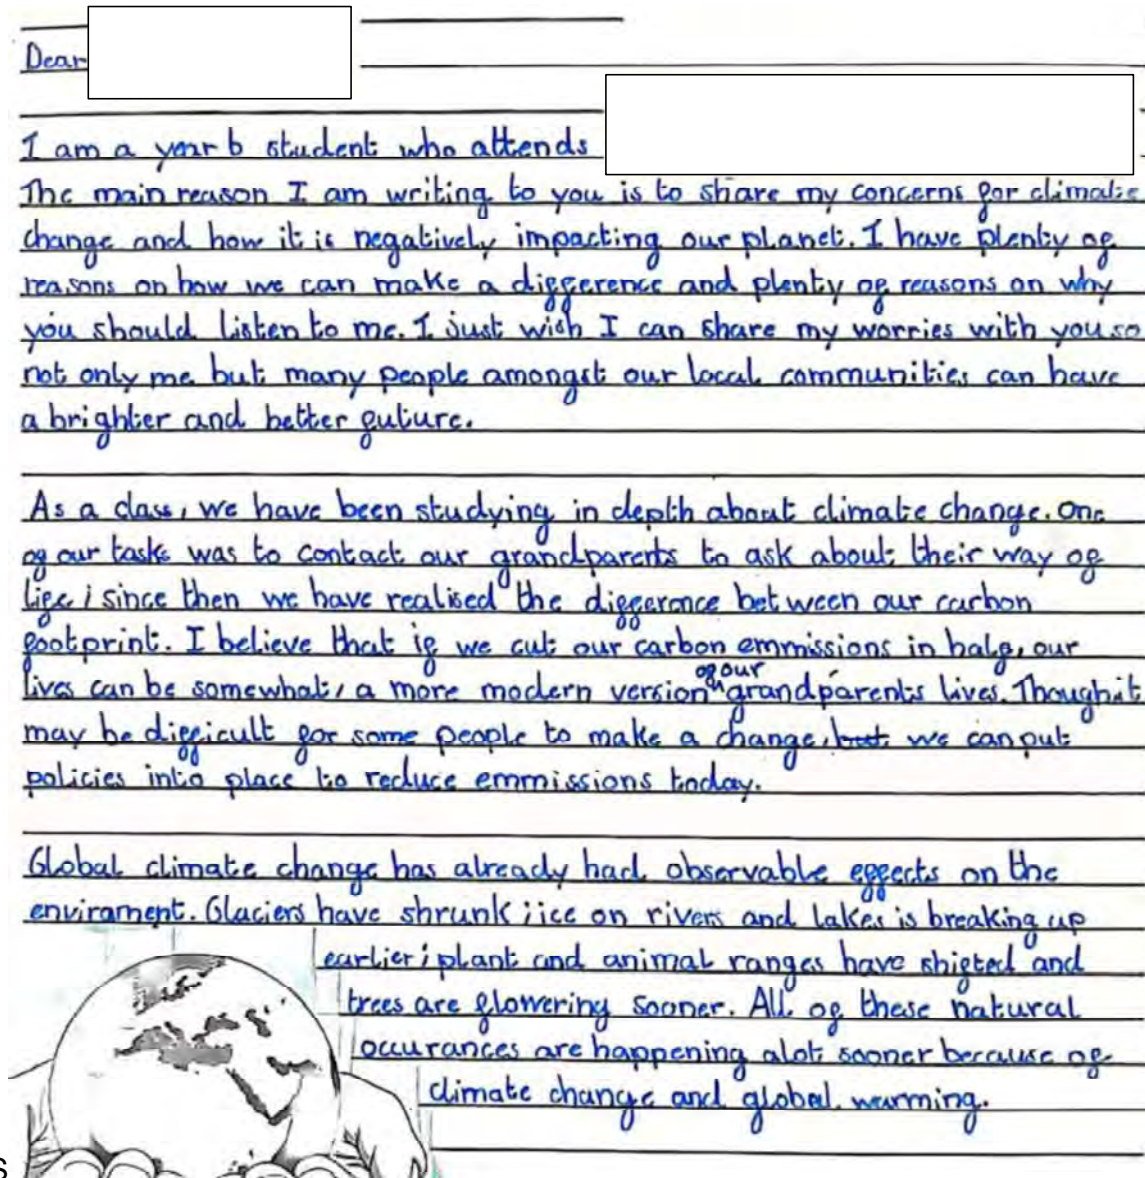 Dear
I am a year 6 student who attends
The main reason I am writing to you is to share my concerns for climate
change and how it is negatively impacting our planet. I have plenty of
reasons on how we can make a difference and plenty of reasons on why
you should listen to me. I just wish I can share my worries with you so
not only me but many people amongst our local communities can have
a brighter and better future.
As a class, we have been studying in depth about climate change. One
of our tasks was to contact our grandparents to ask about their way of
life; since then we have realised the differance between our carbon
footprint. I believe that if we cut our carbon emmissions in half, our
lives can be somewhat, a more modern version of our grandparents lives. Though it
may be difficult for some people to make a change, but we can put
policies into place to reduce emmissions today.
Global climate change has already had observable effects on the
envirament. Glaciers have shrunk; ice on rivers and lakes is breaking up
earlier; plant and animal ranges have shifted and
trees are flowering sooner. All of these natural
occurances are happening alot sooner because of
climate change and global warming.
s